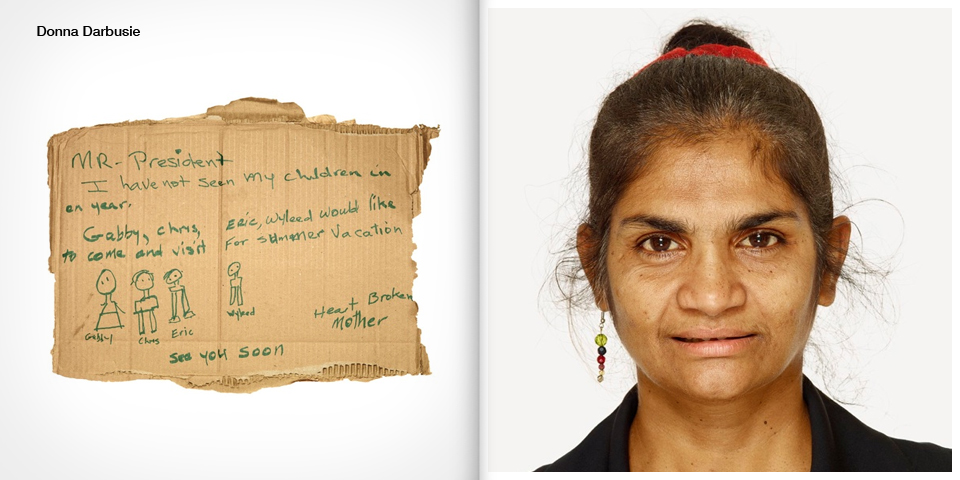 Donna Darbusie
MR- President
I have not seen my children in
an year.
Gabby, chris, Eric, Wyleed would like
to come and visit For summer vacation
Gabby Chris Eric Wyleed
Heart Broken
Mother
See you soon